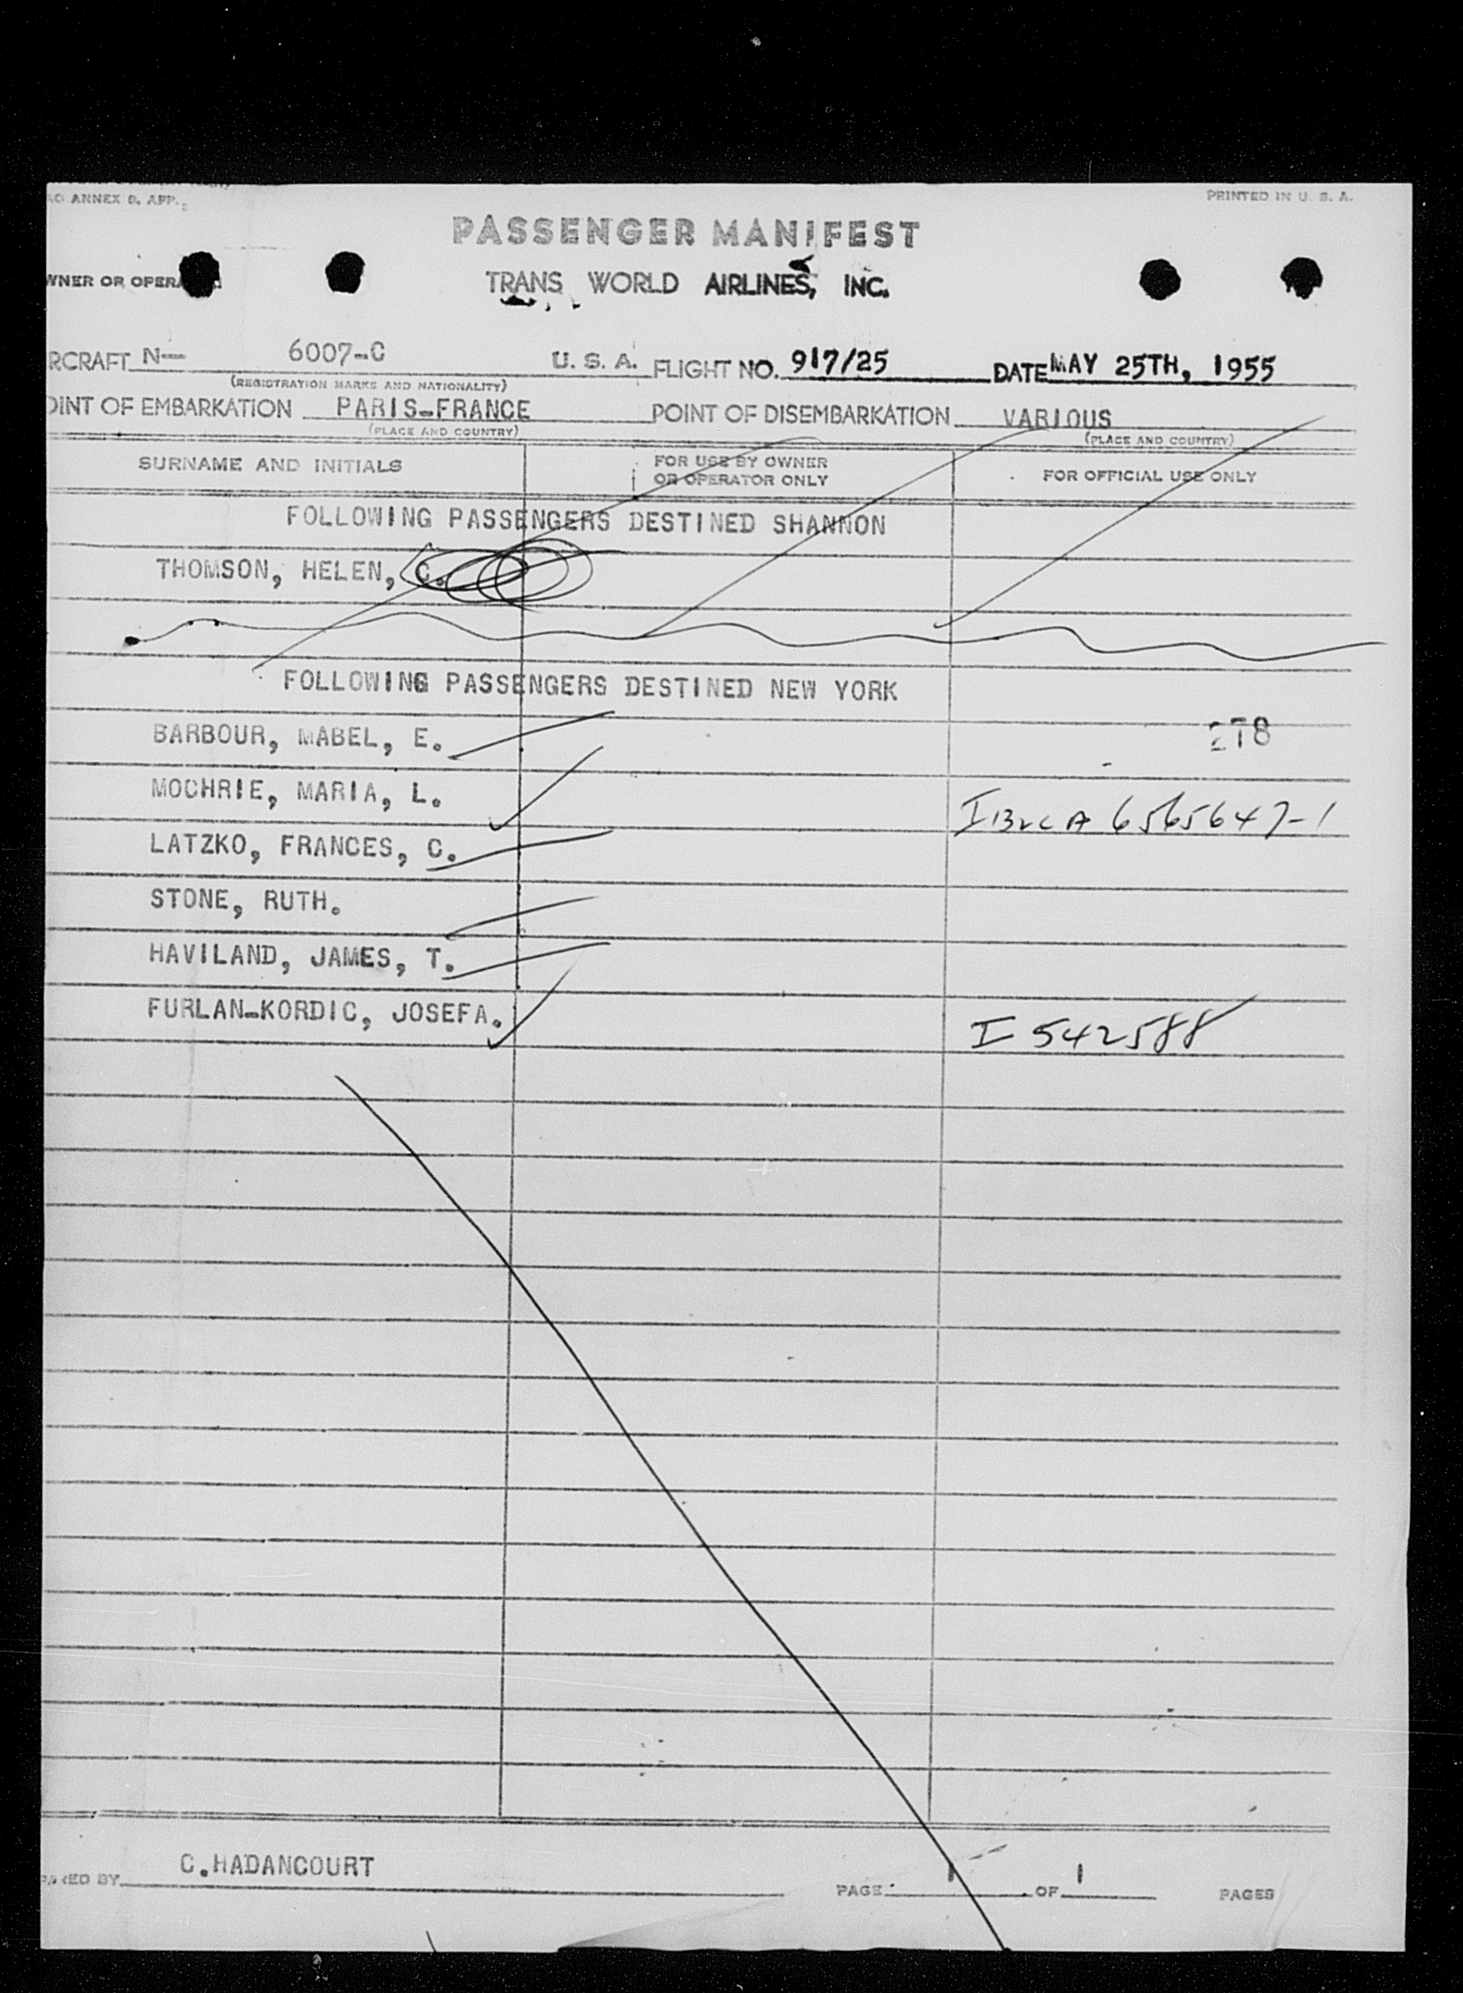 AO ANNEX 9, APP.
PRINTED IN U. S. A.
PASSENGER MANIFEST
WNER OR OPERA
TRANS WORLD AIRLINES, INC.
RCRAFT N- 6007-C U. S. A. FLIGHT NO. 917/25 DATE MAY 25TH, 1955
(REGISTRATION MARKS AND NATIONALITY)
OINT OF EMBARKATION PARIS-FRANCE POINT OF DISEMBARKATION VARIOUS
(PLACE AND COUNTRY) (PLACE AND COUNTRY)
SURNAME AND INITIALS FOR USE BY OWNER OR OPERATOR ONLY FOR OFFICIAL USE ONLY
FOLLOWING PASSENGERS DESTINED SHANNON
THOMSON, HELEN, C.
FOLLOWING PASSENGERS DESTINED NEW YORK
BARBOUR, MABEL, E. 278
MOCHRIE, MARIA, L. I 6565647-1
LATZKO, FRANCES, C.
STONE, RUTH.
HAVILAND, JAMES, T.
FURLAN-KORDIC, JOSEFA. I 542588
ARED BY C.HADANCOURT PAGE 1 OF 1 PAGES